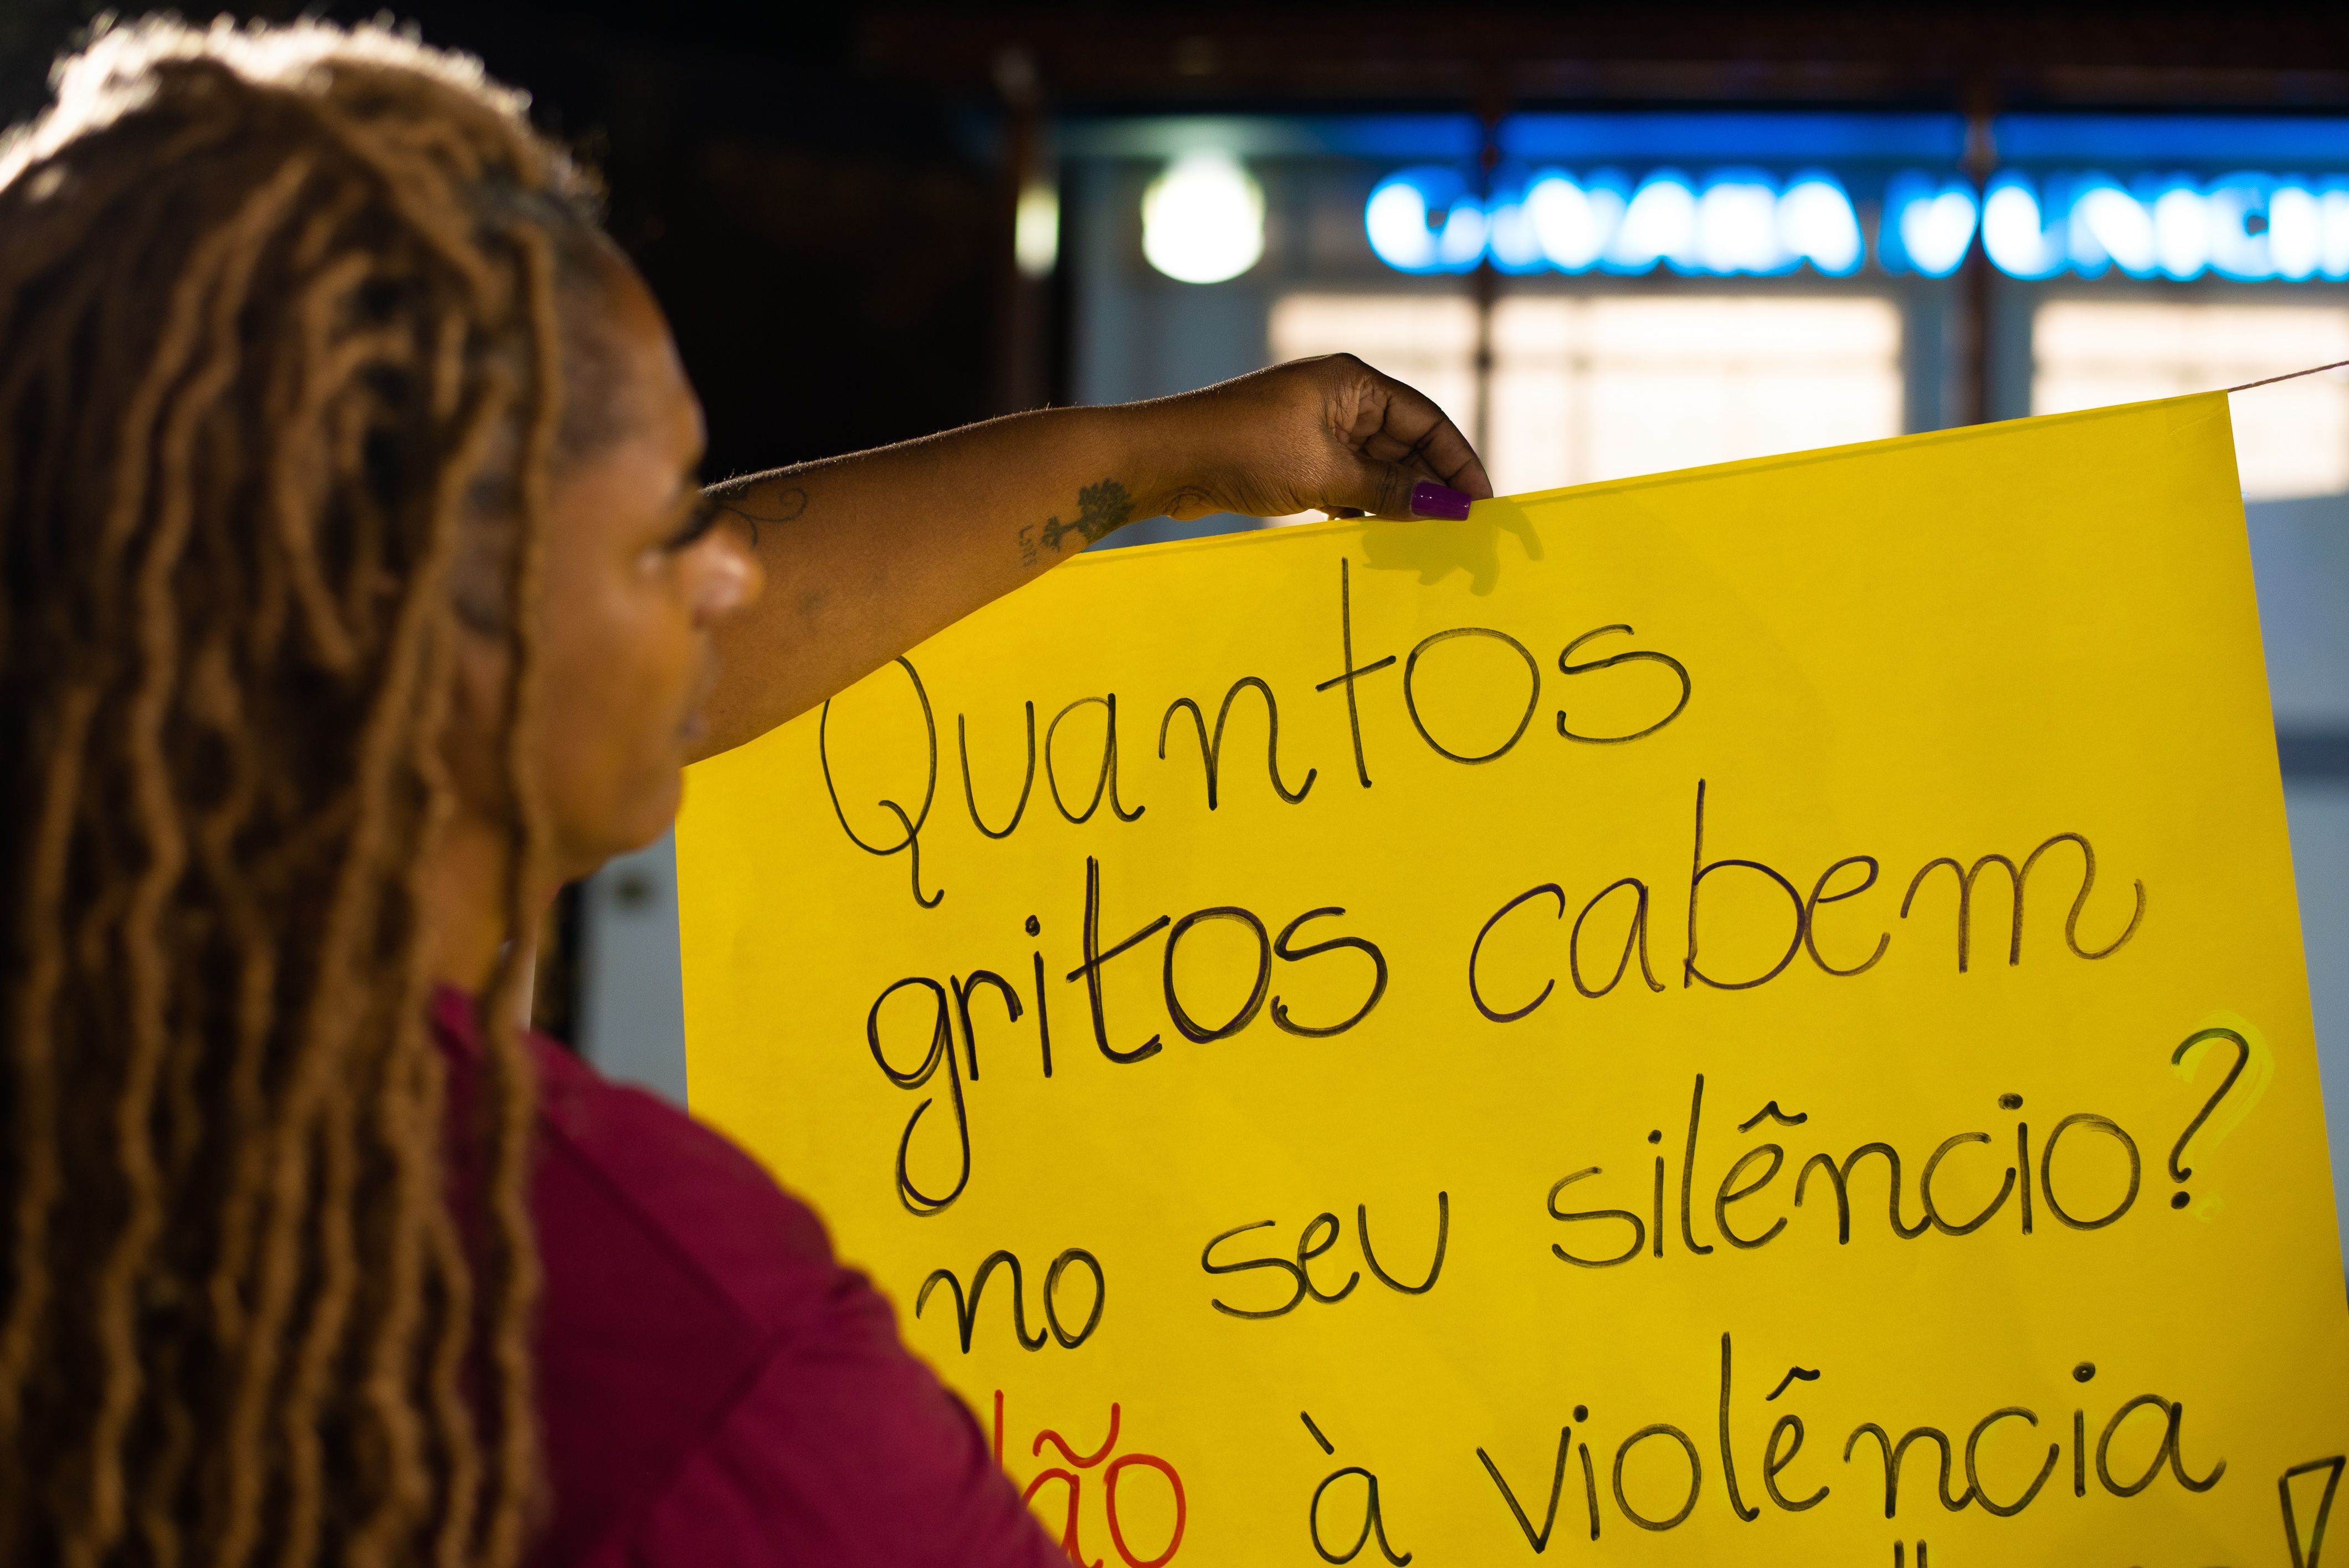 CÂMARA MUNICI
Quantos
gritos cabem
no seu silêncio?
ão à violência !